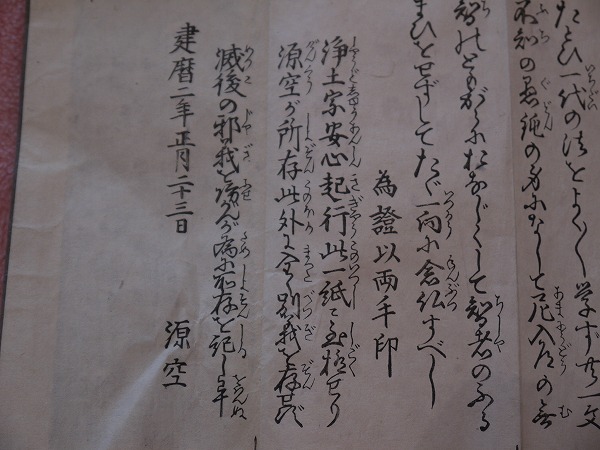 たとひ一代の法をよく〳〵学ず共一文
不知の愚鈍の身になして尼入道の無
智のともがらにおなじくして智者のふる
まひをせずしてたゞ一向に念仏すべし
為證以両手印
浄土宗安心起行此一紙ニ至極せり
源空が所存此外に全く別義を存ぜず
滅後の邪義を防んが為に所存を記し畢
建暦二年正月二十三日 源空